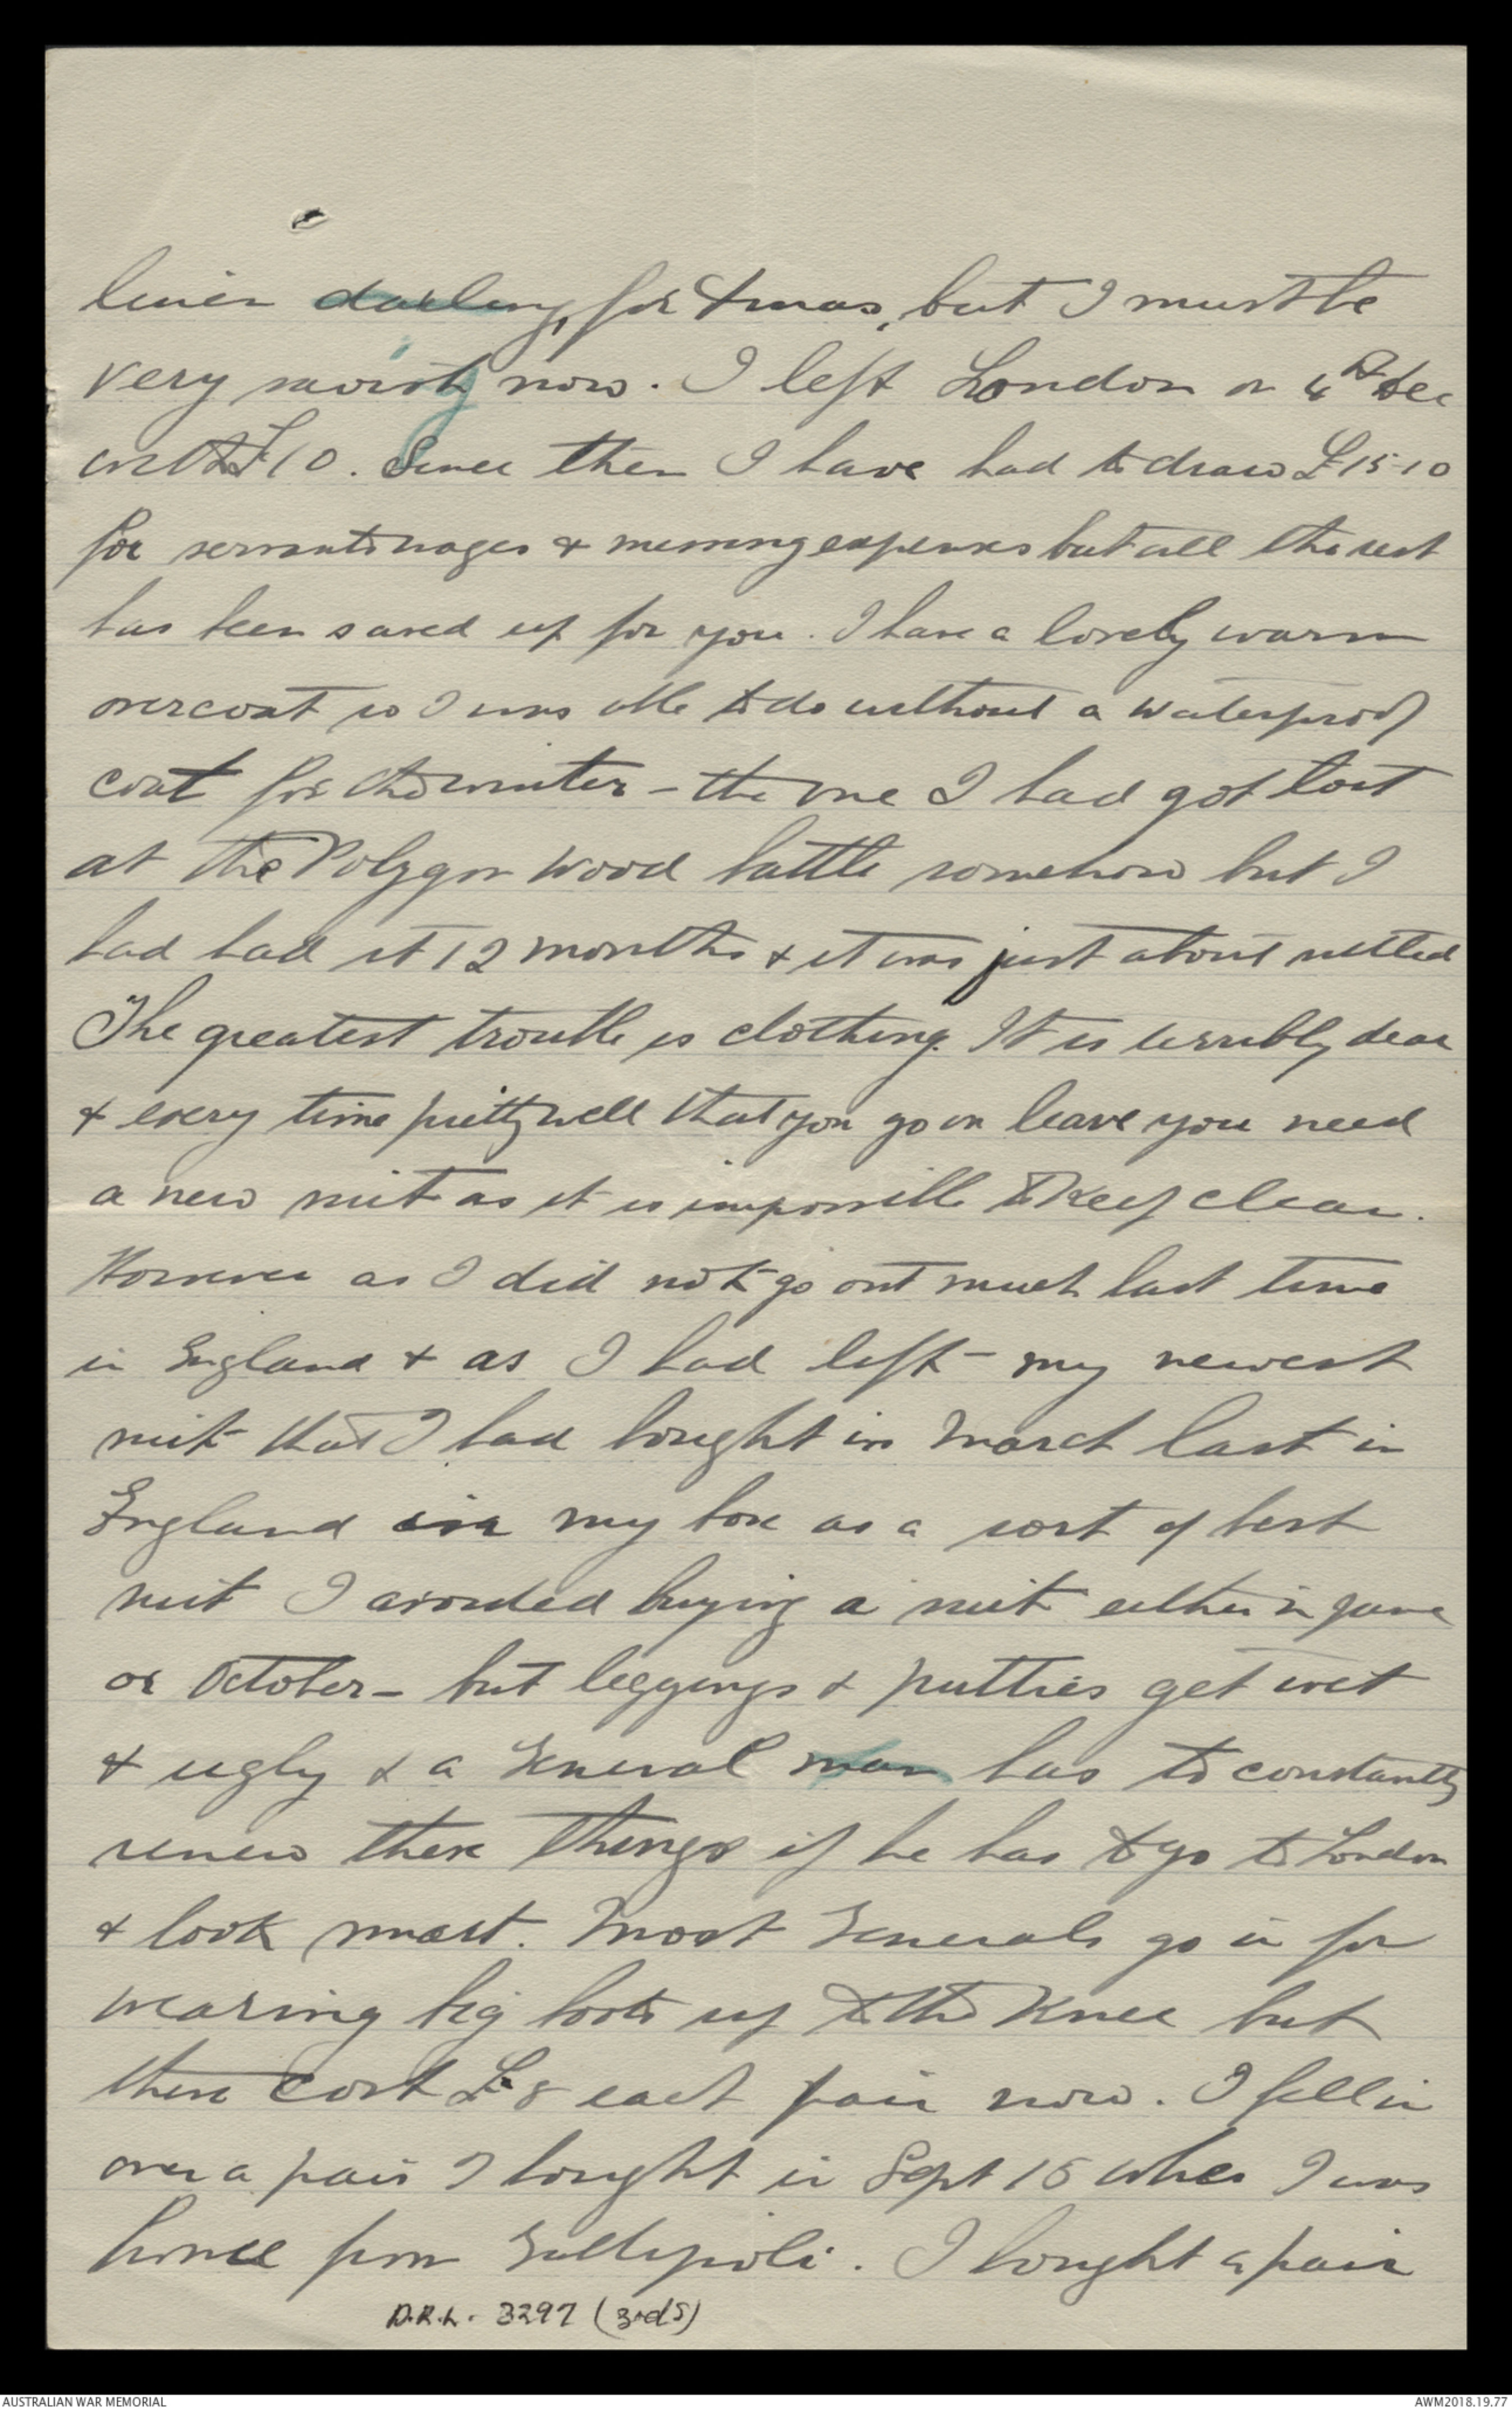 linen darling, for Xmas, but I must be
very now. I left London on 4th Dec
with £10. Since then I have had to draw £15-10
for servants wages & messing expenses but all the rest
has been saved up for you. I have a lovely warm
overcoat so I was able to do without a waterproof
coat for the winter - the one I had got lost
at the Polygon Wood battle somehow but I
had had it 12 months & it was just about
The greatest trouble is clothing. It is terribly dear
& every time pretty well that you go on leave you need
a new suit as it is impossible to keep clean.
However as I did not go out much last time
in England & as I had left my newest
suit that I had bought in March last in
England in my box as a sort of best
suit I avoided buying a suit either in June
or October - but leggings & putties get wet
& ugly & a General man has to constantly
renew these things if he has to go to London
& look smart. Most Generals go in for
wearing big boots up to the knee but
these cost £8 each pair now. I fell in
over a pair I bought in Sept 15 when I was
home from Gallipoli. I bought a pair
D.R.L. 3297 (3rdS)
AUSTRALIAN WAR MEMORIAL
AWM2018.19.77